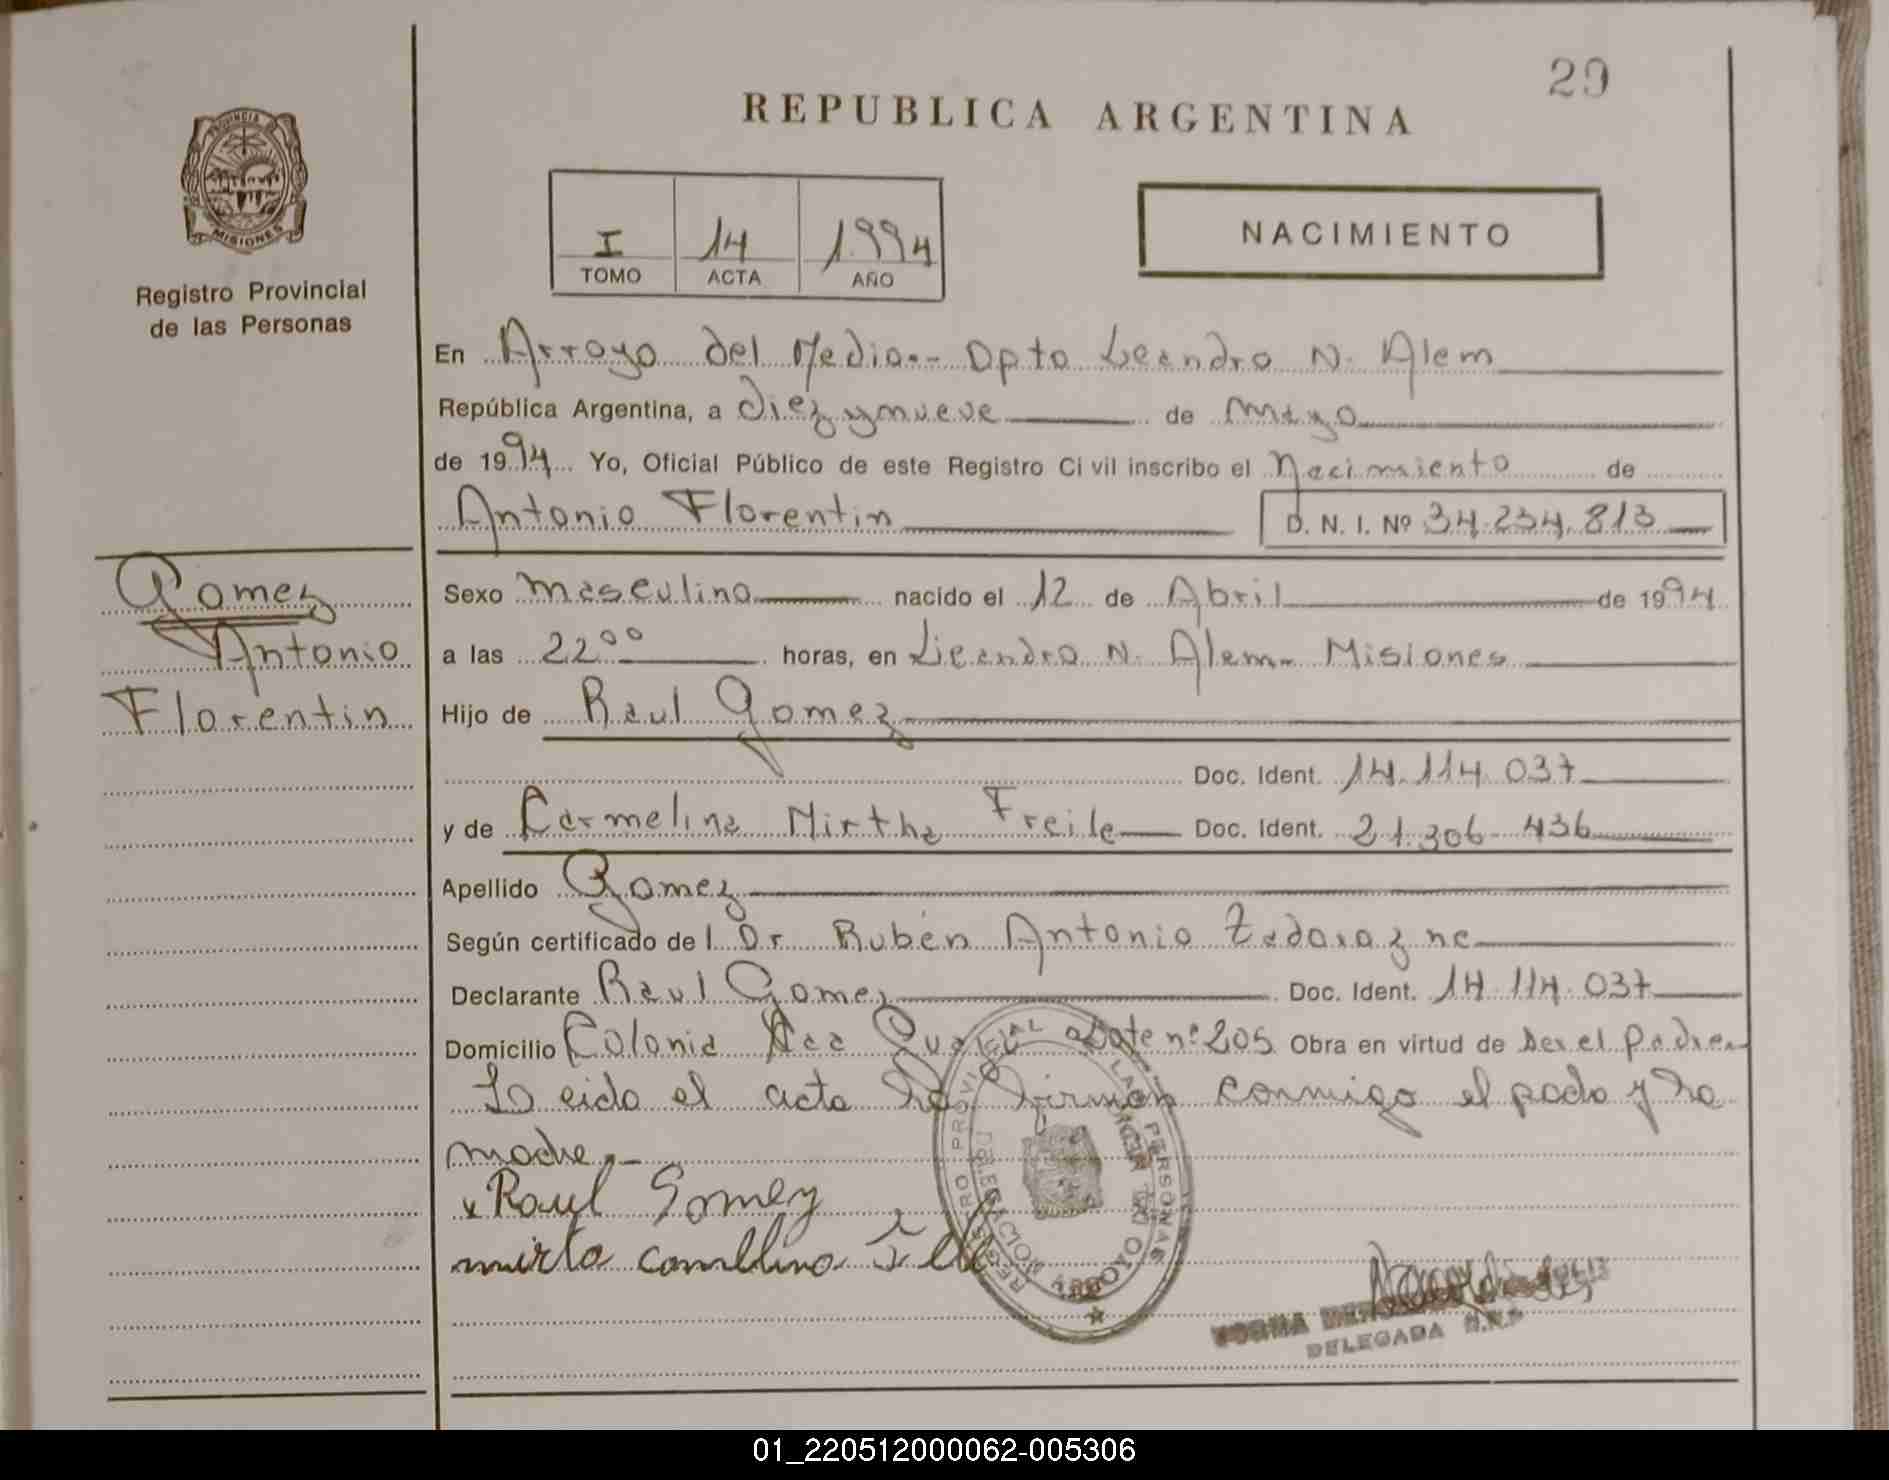 29
REPUBLICA ARGENTINA
PROVINCIA DE
MISIONES
Registro Provincial
de las Personas
I 14 1994
TOMO ACTA AÑO
NACIMIENTO
En Arroyo del Medio.- Dpto Leandro N. Alem
República Argentina, a diez y nueve de mayo
de 1994 Yo, Oficial Público de este Registro Civil inscribo el Nacimiento de
Antonio Florentin D. N. I. Nº 34.234.813
Gomez
Antonio
Florentin
Sexo masculino nacido el 12 de Abril de 1994
a las 22⁰⁰ horas, en Leandro N. Alem - Misiones
Hijo de Raul Gomez
Doc. Ident. 14.114.037
y de Carmelina Mirtha Freile Doc. Ident. 21.306.436
Apellido Gomez
Según certificado del Dr Rubén Antonio
Declarante Raul Gomez Doc. Ident. 14.114.037
Domicilio Colonia Lote nº 205 Obra en virtud de ser el padre
Leida el acta la firman conmigo el padre y la
madre.-
x Raul Gomez
mirta
REGISTRO PROVINCIAL DE LAS PERSONAS
DELEGADA
01_220512000062-005306